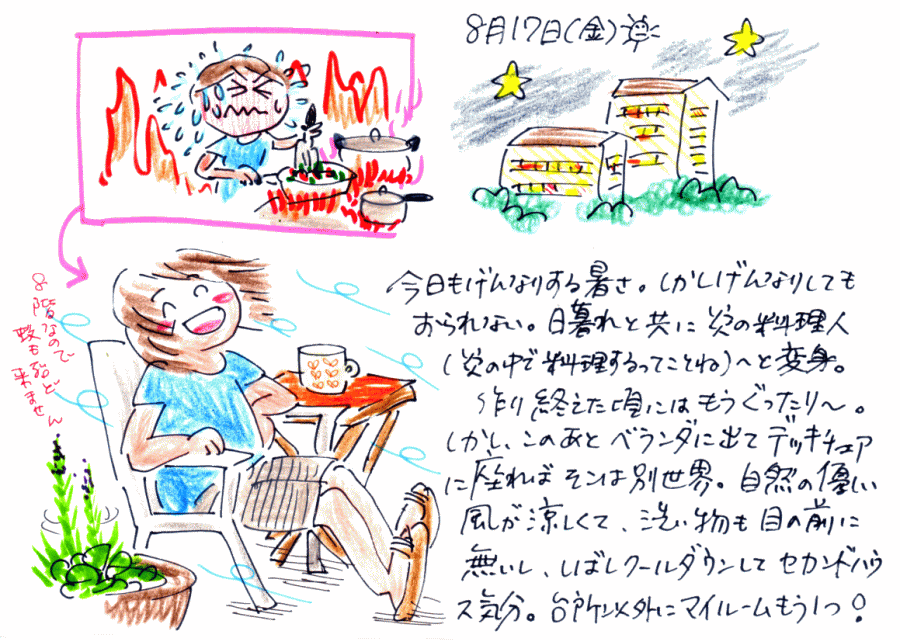 8月17日(金)
今日もげんなりする暑さ。しかしげんなりしても
おられない。日暮れと共に炎の料理人
(炎の中で料理するってことね)へと変身。
作り終えた頃にはもうぐったり〜。
しかし、このあとベランダに出てデッキチェア
に座ればそこは別世界。自然の優しい
風が涼しくて、洗い物も目の前に
無いし、しばしクールダウンしてセカンドハウ
ス気分。台所以外にマイルームもう1つ!
8階なので
蚊も殆ど
来ません